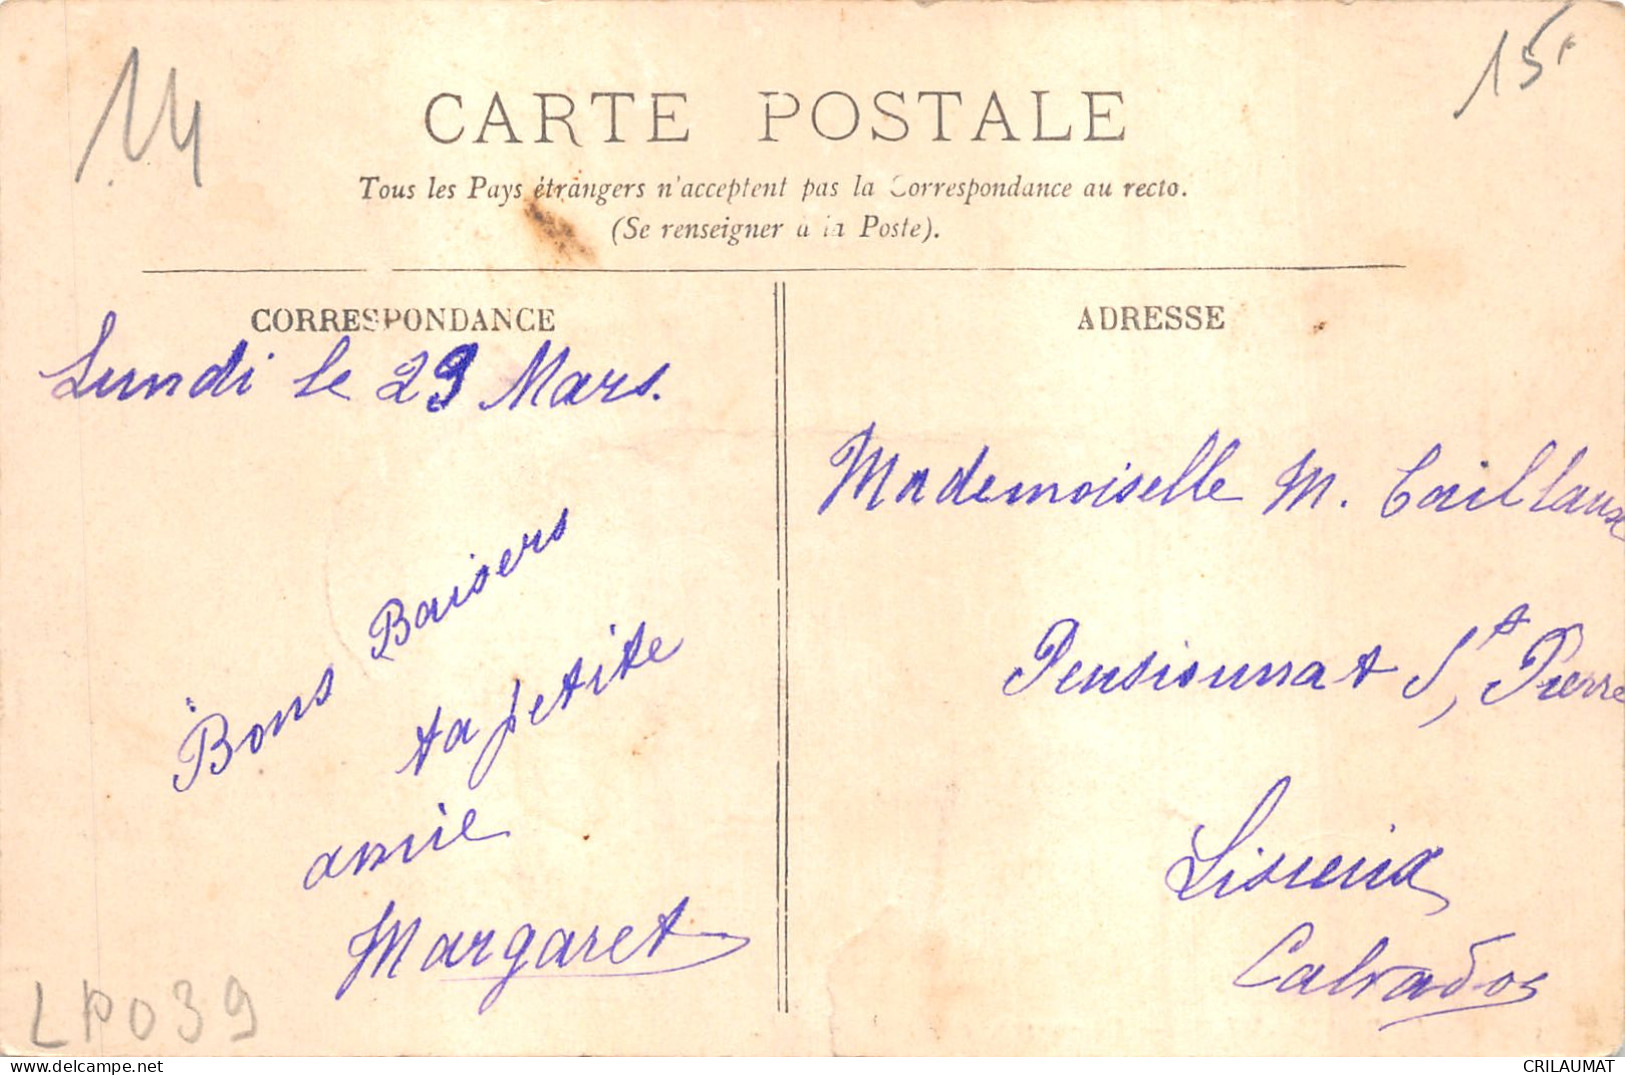 14
15f
CARTE POSTALE
Tous les Pays étrangers n'acceptent pas la Correspondance au recto.
(Se renseigner à la Poste).
CORRESPONDANCE
Lundi le 29 Mars.
Bons Baisers
ta petite
amie
Margaret
LP039
ADRESSE
Mademoiselle M. Caillaux
Pensionnat St Pierre
Lisieux
Calvados
CRILAUMAT